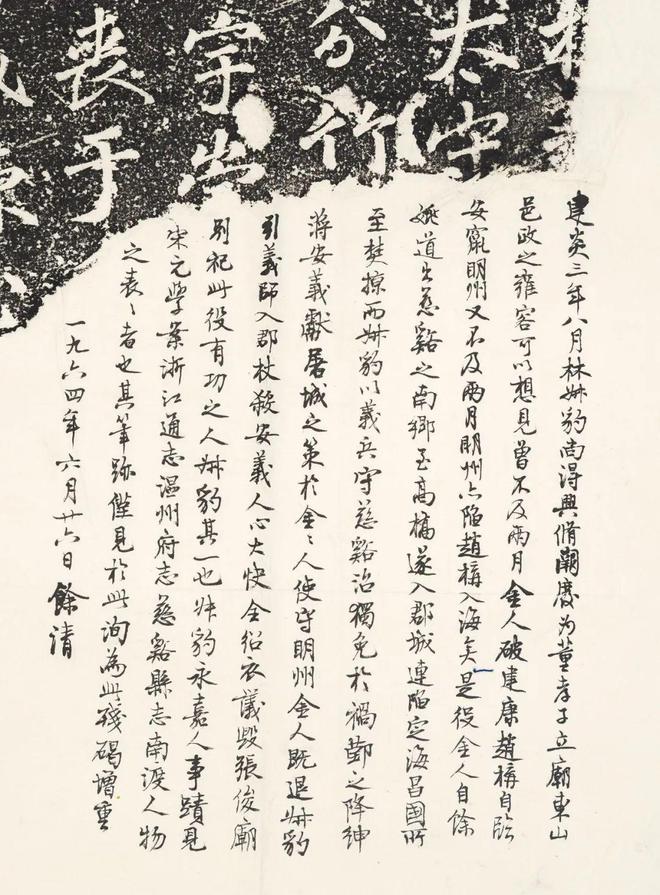 太守
分行
字山
喪于
建炎三年八月林叔豹尚得興脩廢为董孝子立廟東山
邑政之雍容可以想見曾不及兩月金人破建康趙構自臨
安竄明州又不及兩月明州亦陷趙構入海矣是役金人自餘
姚道出慈谿之南鄉至高橋遂入郡城連陷定海昌國所
至焚掠而叔豹以義兵守慈谿治獨免於禍鄞之降紳
蔣安義獻屠城之策於金〻人使守明州金人既退叔豹
引義師入郡杖殺安義人心大快全紹衣議毀張俊廟
别祀此役有功之人叔豹其一也叔豹永嘉人事蹟見
宋元學案浙江通志温州府志慈谿縣志南渡人物
之表〻者也其筆跡僅見於此洵為此殘碣增重
一九六四年六月廿六日餘清